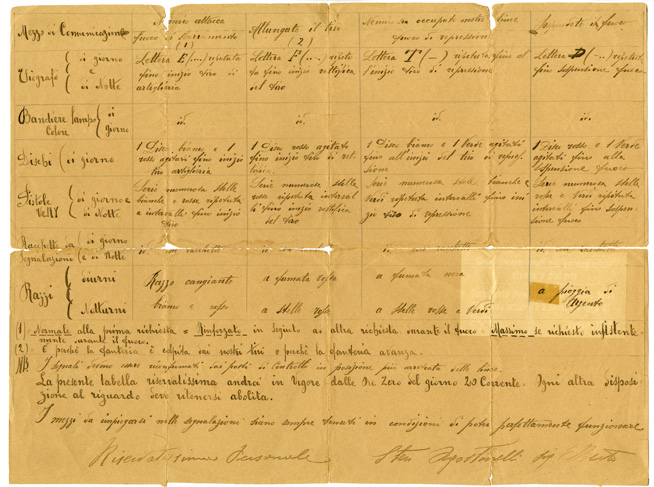 Mezzo di Comunicazione
Nemico attacca
fuoco di sbarramento
(1)
Allungate il tiro
(2)
Nemico occupata nostra linea
fuoco di repressione
Sospendete il fuoco
Eliografo { di giorno
e
di Notte
Lettera E (...) ripetuta
fino inizio tiro di
artiglieria
Lettera F (..-.) ripetuta
fino inizio rettifica
del tiro
Lettera T (-) ripetuta fino al
l'inizio tiro di repressione
Lettera D (-..) ripetuta
fino sospensione fuoco
Bandiere lampo
Colore { di
giorno
id. id. id. id.
Dischi { di giorno
1 Disco bianco e 1
rosso agitati fino inizio
tiri artiglieria
1 Disco rosso agitato
fino inizio tiro di ret-
tifica
1 Disco bianco e 1 Verde agitati
fino all'inizio del tiro di repres-
sione
1 Disco rosso e 1 Verde
agitati fino alla
sospensione fuoco
Pistole
Very { di giorno e
di Notte
Serie numerosa stelle
bianche e rosse ripetuta
a intervalli fino inizio
tiro
Serie numerosa stelle
rosse ripetuta intervalli
fino inizio rettifica
del tiro
Serie numerosa stelle bianche e
verdi ripetuta intervalli fino ini-
zio tiro di repressione
Serie numerosa stelle
rosse e Verdi ripetuta
intervalli fino sospen-
sione fuoco
Racchette da
Segnalazioni { di giorno
e di Notte
Razzi { diurni
Notturni
Razzo cangiante
bianco e rosso
a fumata rossa
a stelle rosse
a fumata nera
a stelle rosse e Verdi
a pioggia di
Argento
(1) Normale alla prima richiesta = Rinforzato in seguito ad altra richiesta durante il fuoco = Massimo se richiesto insistente-
mente durante il fuoco.
(2) E perchè la fanteria è colpita dai nostri tiri o perchè la fanteria avanza.
NB I segnali devono essere riconfermati dai posti di controllo in posizione più arretrata delle linee.
La presente tabella riservatissima andrà in Vigore dalle Ore Zero del giorno 20 Corrente. Ogni altra disposi-
zione al riguardo deve ritenersi abolita.
I mezzi da impiegarsi nelle segnalazioni siano sempre tenuti in condizioni di poter perfettamente funzionare
Riservatissimo Personale
Sten Agostinelli